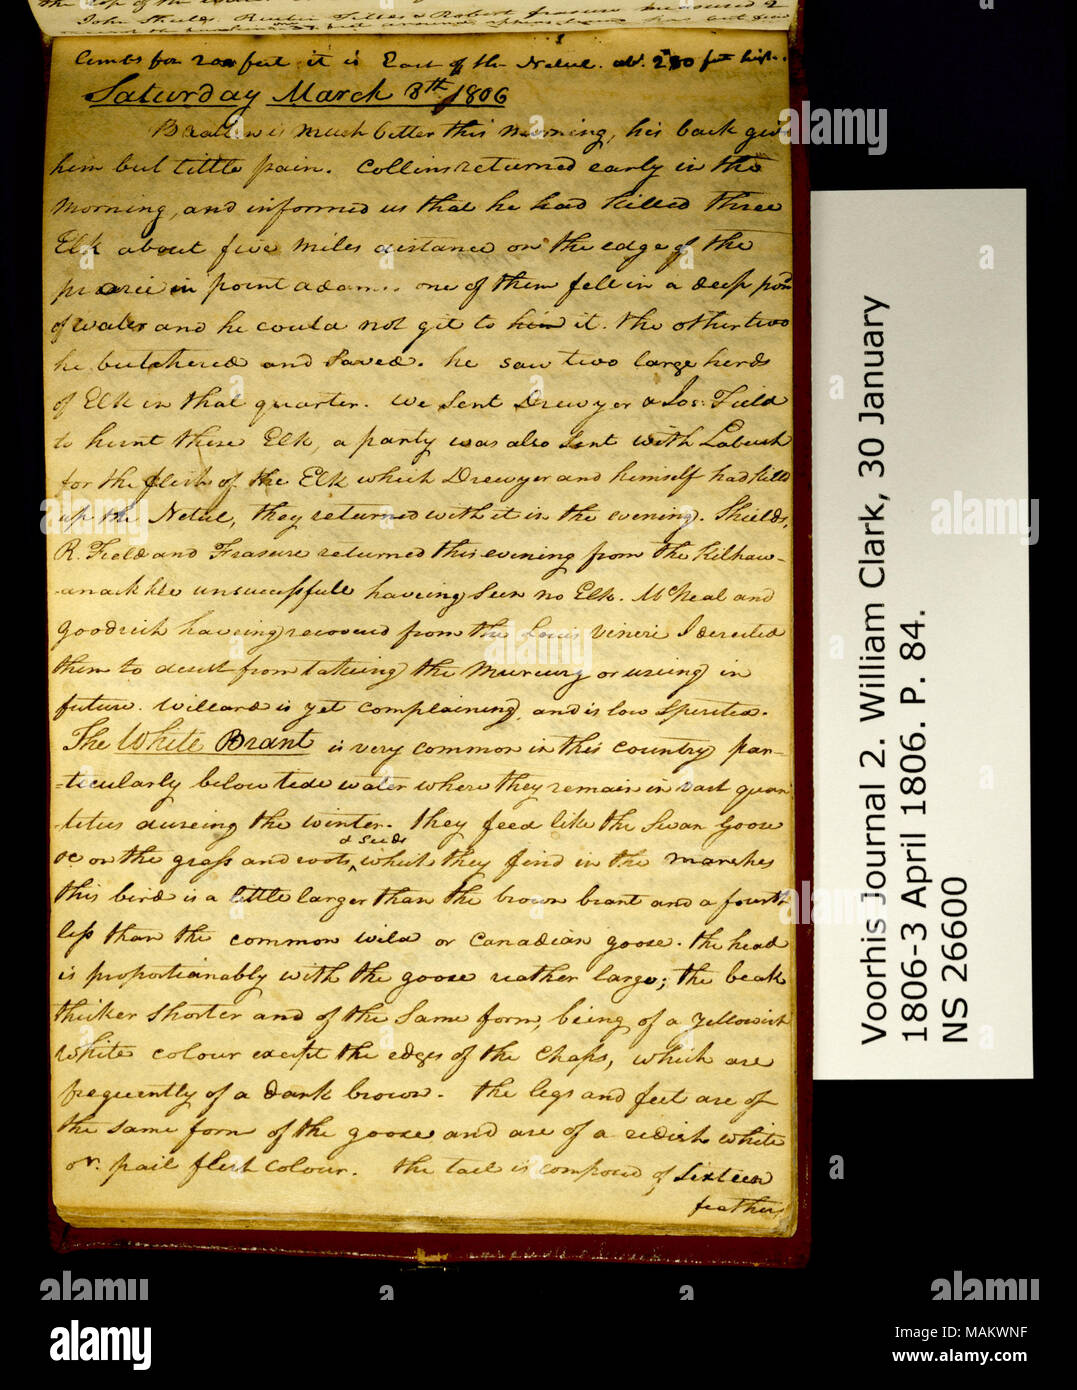 John Shields, Reubin Fields & Robert frasure measured 2
limbs for 200 feet it is East of the Netul. abt. 280 feet high.
Saturday March 8th 1806
Bratten is much better this morning, his back givs
him but little pain. Collins returned early in the
morning, and informed us that he had killed three
Elk about five miles distance on the edge of the
praerie in point adams. one of them fell in a deep pond
of water and he could not git to him it. the other two
he butchered and Saved. he saw two large herds
of Elk in that quarter. We Sent Drewyer & Jos: Field
to hunt these Elk, a party was also Sent with Labush
for the flesh of the Elk which Drewyer and himself had killed
up the Netul, they returned with it in the evening. Shields,
R. Field and Frasure returned this evening from the Kilhaw-
-anackkle unsucessfull haveing Seen no Elk. McNeal and
goodrich haveing recovered from the Louis veneri I derected
them to desist from takeing the murcury or useing in
future. Willard is yet complaining and is low Spirited.
The White Brant is very common in this country par-
-ticularly below tide water where they remain in vast quan
-tities dureing the winter. they feed like the Swan Goose
&c on the grass and roots & seeds which they find in the marshes
this bird is a little larger than the brown brant and a fourth
less than the common wild or Canadian goose. the head
is proportionably with the goose reather large; the beak
thicker Shorter and of the Same form, being of a yellowish
white colour except the edges of the chaps, which are
frequently of a dark brown. the legs and feet are of
the Same form of the goose and are of a redish white
or pail flesh colour. the tail is composed of Sixteen
feathers
Voorhis Journal 2. William Clark, 30 January
1806-3 April 1806. P. 84.
NS 26600
alamy
a
alamy
Image ID: MAKWNF
www.alamy.com